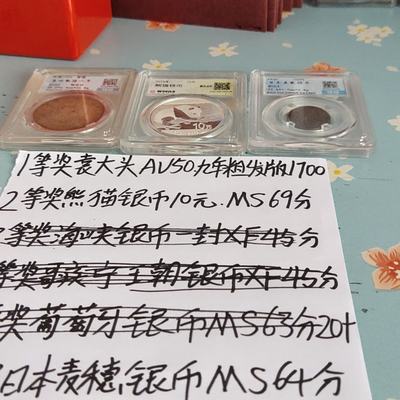 10元
1等奖袁大头AU50.九年精发版1700
2等奖熊猫银币10元.MS69分
等奖海峡银币一封XF45分
等奖哥宾宁王朝银币XF45分
奖葡萄牙银币MS63分20+
日本麦穗银币MS64分